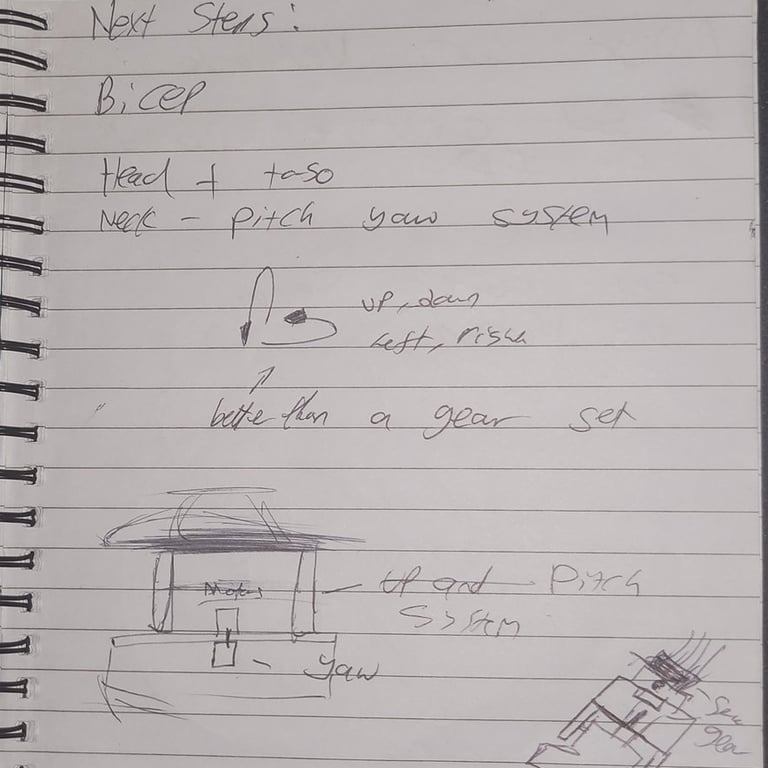 Next Steps:
Bicep
Head + toso
Neck - Pitch yaw system
up, down
Left, right
better than a gear set
Motor
Pitch
System
yaw
gear